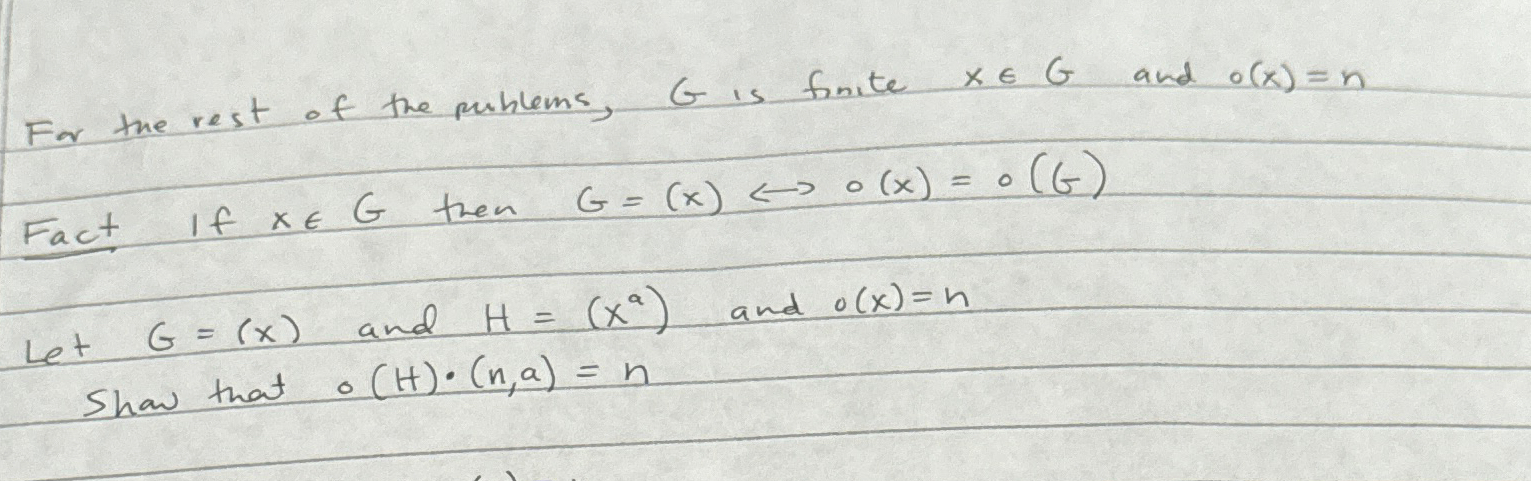 For the rest of the publems, G is finite x ∈ G and o(x) = n
Fact If x ∈ G then G = (x) ⟷ o(x) = o(G)
Let G = (x) and H = (xᵃ) and o(x) = n
Show that o(H)·(n,a) = n